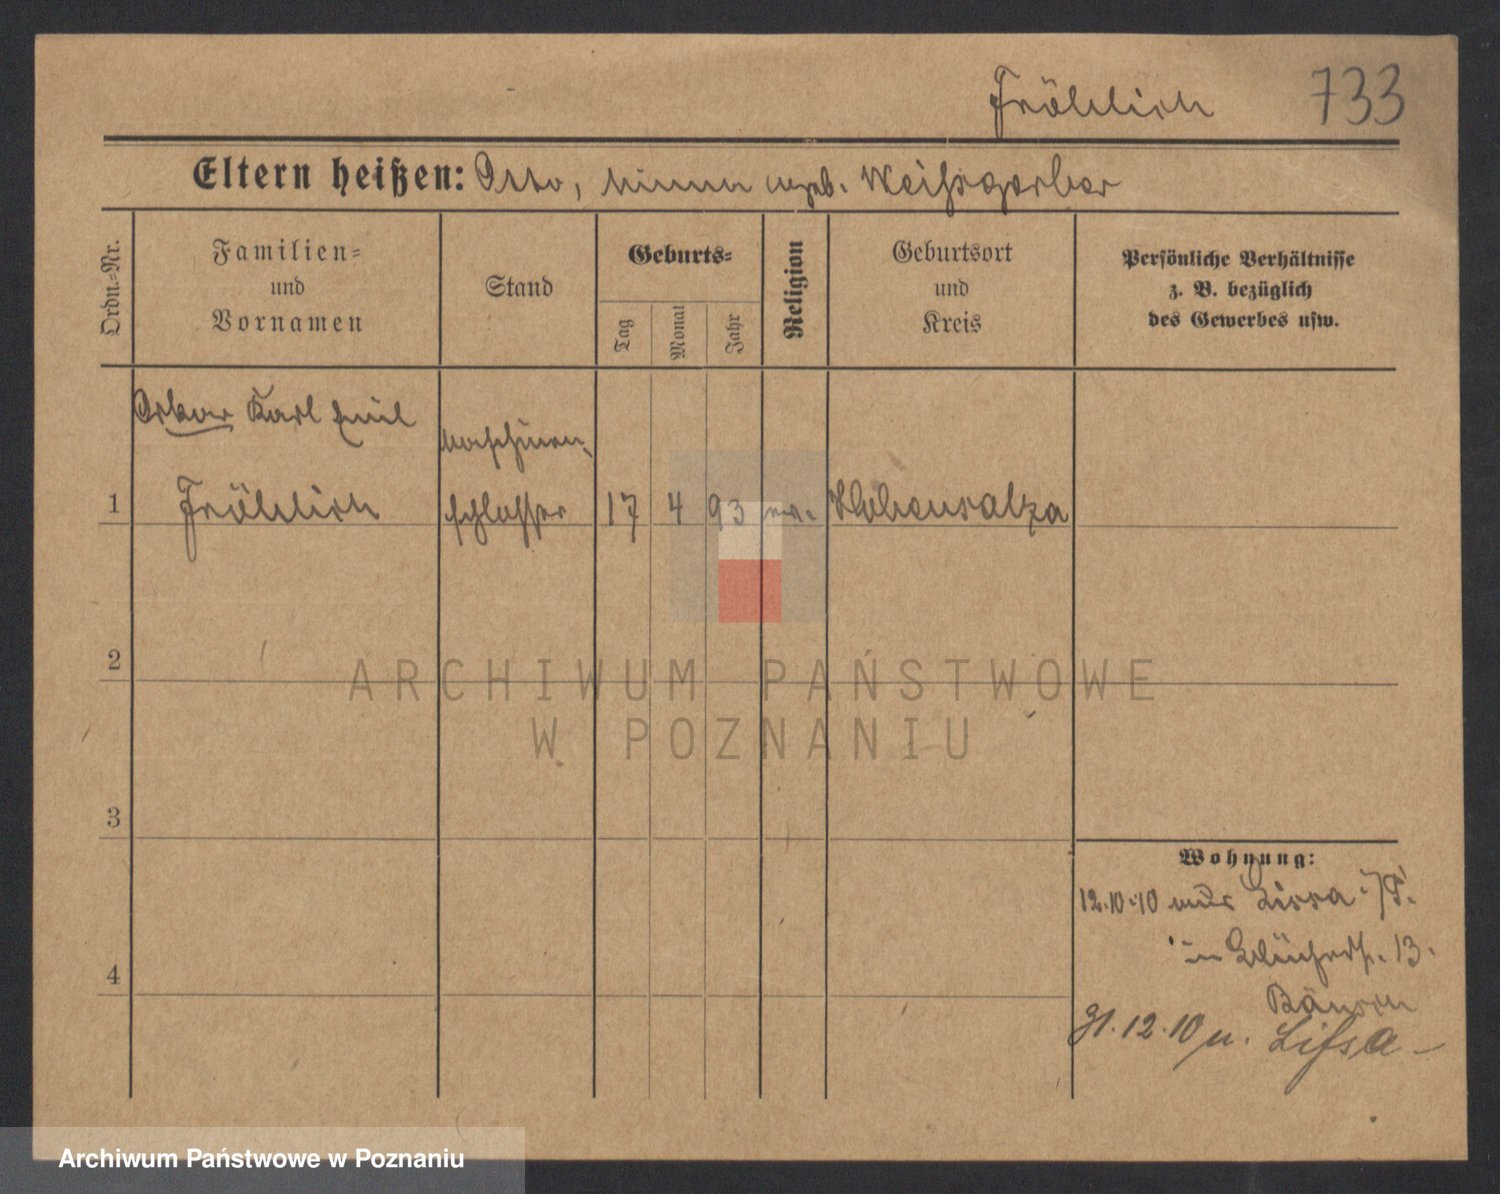 Fröhlich 733
Eltern heißen: Otto, Minna geb. Weißgerber
Ordn.-Nr.
Familien-
und
Vornamen
Stand
Geburts-
Tag
Monat
Jahr
Religion
Geburtsort
und
Kreis
Persönliche Verhältnisse
z. B. bezüglich
des Gewerbes usw.
Oskar Karl Emil
Maschinen-
1 Fröhlich schlosser 17 4 93 ev. Hohensalza
2
3
4
Wohnung:
12.10.10 aus Lissa i/P.
in Blücherstr. 13.
31.12.10 n. Lissa
ARCHIWUM PAŃSTWOWE
W POZNANIU
Archiwum Państwowe w Poznaniu